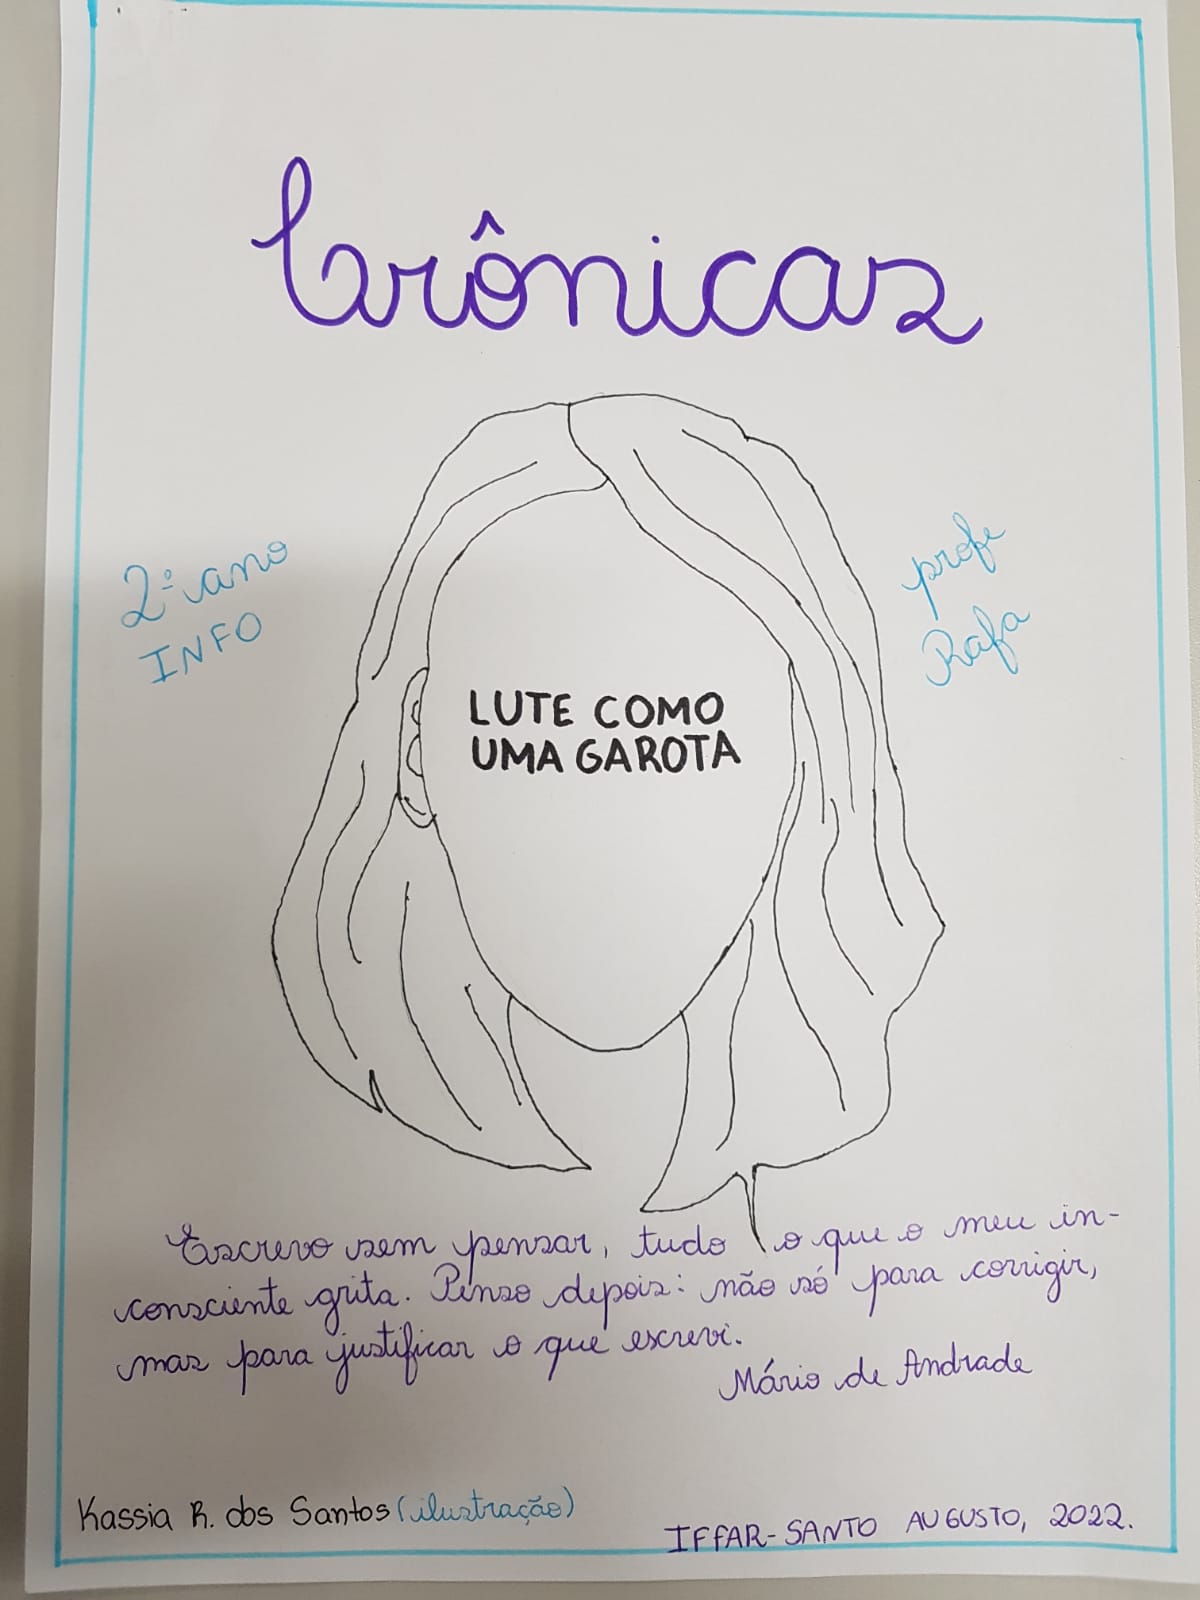 Crônicas
2º ano
INFO
profe
Rafa
LUTE COMO
UMA GAROTA
Escrevo sem pensar, tudo o que o meu in-
consciente grita. Penso depois: não só para corrigir,
mas para justificar o que escrevi.
Mário de Andrade
Kassia R. dos Santos (ilustração)
IFFAR-SANTO AUGUSTO, 2022.